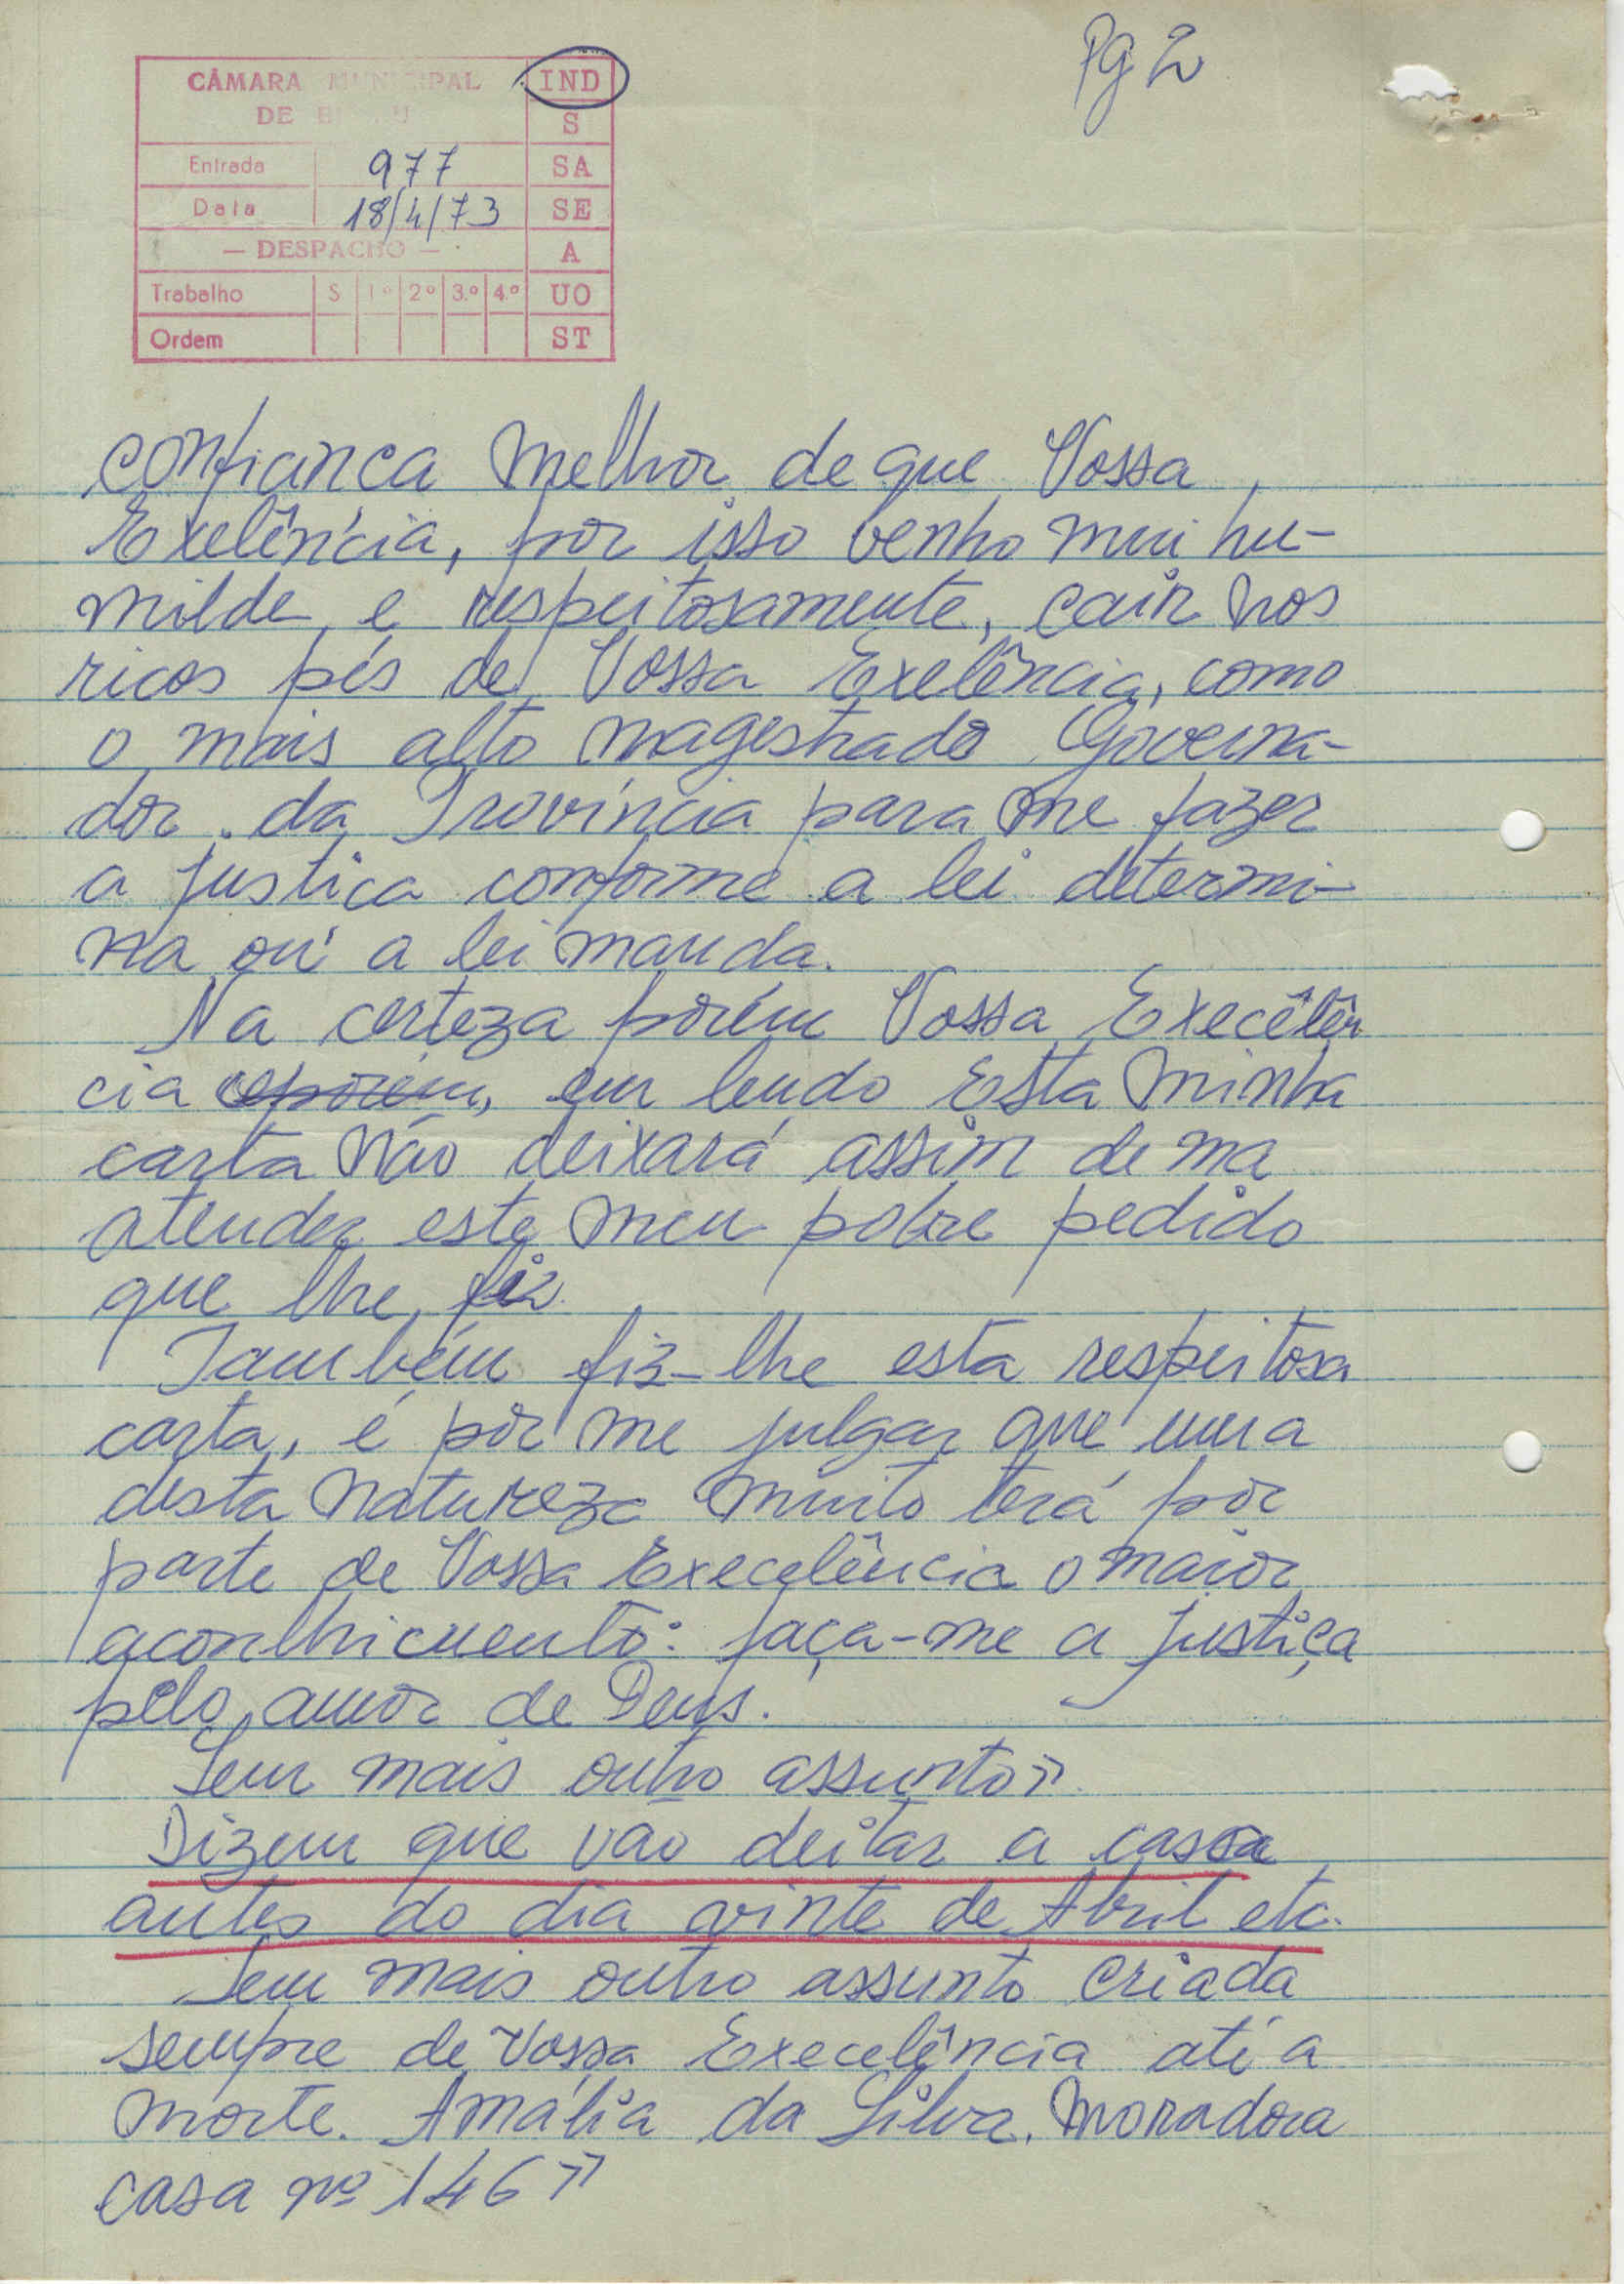 Pg 2
CÂMARA MUNICIPAL
DE
IND
S
Entrada 977 SA
Data 18/4/73 SE
— DESPACHO — A
Trabalho S 1º 2º 3.º 4.º UO
Ordem ST
confianca melhor de que Vossa
Exelência, por isso benho mui hu-
milde e respeitosamente, cair nos
ricos pés de Vossa Exelência, como
o mais alto magestrado Governa-
dor da Província para me fazer
a justica conforme a lei determi-
na ou a lei manda.
Na certeza porém Vossa Execêlên
cia em lendo Esta minha
carta não deixará assim de ma
atender este meu pobre pedido
que lhe fiz
Também fiz-lhe esta respeitosa
carta, é por me julgar que uma
desta natureza muito terá por
parte de Vossa Execelência o maior
aconlhicuento: faça-me a justiça
pelo amor de Deus.
Sem mais outro assunto»
Dizem que vão deitar a cassa
antes do dia vinte de Abril etc.
Sem mais outro assunto criada
sempre de Vossa Execelência até a
morte. Amália da Silva. Moradora
casa nº 146»